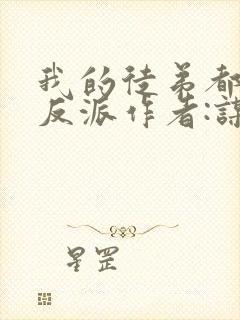 我的徒弟都
反派作者:谋
星罡